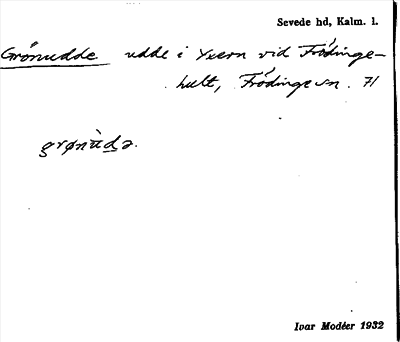 Sevede hd, Kalm. l.
Grönudde udde i Yxern vid Frödinge-
hult, Frödinge sn. 71
grønùd̲ə.
Ivar Modéer 1932